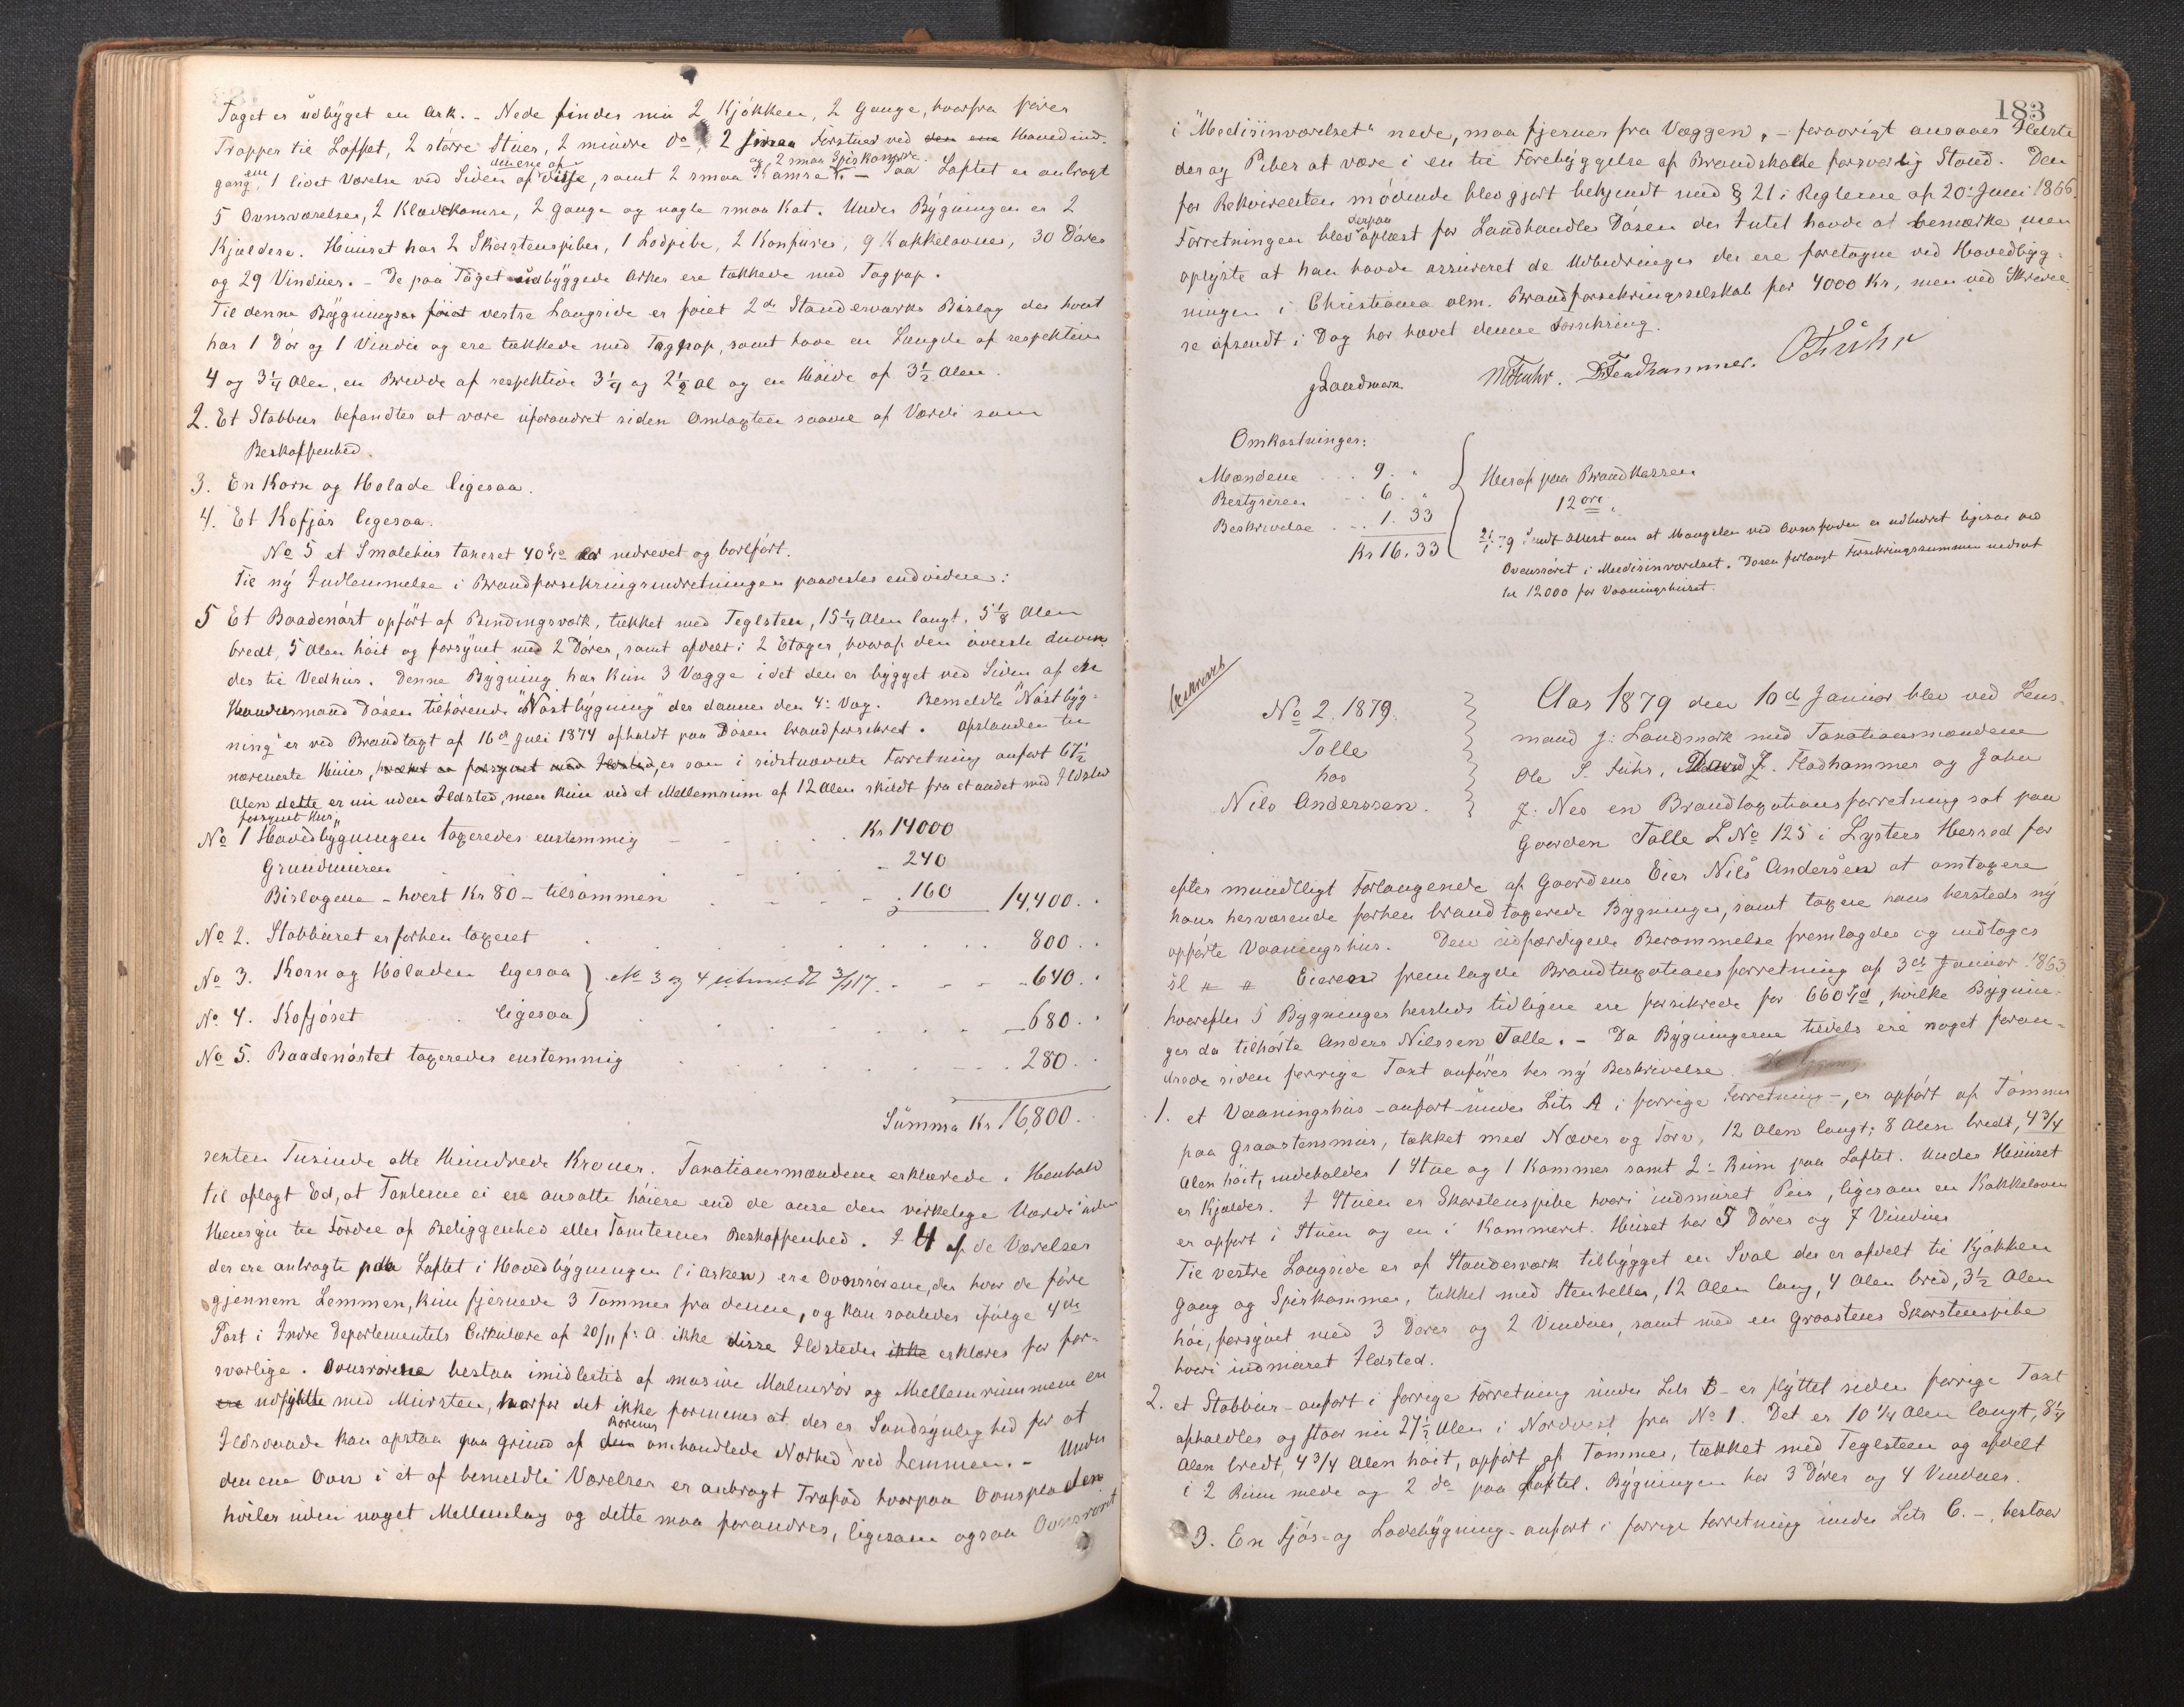 Taget er udbygget en Ark. - Nede findes nu 2 Kjökken, 2 Gange, hvorfra förer
Trapper til Loftet, 2 större Stuer, 2 mindre Do, 2 smaa Forstuer ved den ene Hovedind-
gang, 1 lidet Værelse ved Siden af den ene af disse, samt 2 smaa Kamre og 2 smaa Spiskamre. - Paa Loftet er anbragt
5 Ovnsværelser, 2 Klædekamre, 2 Gange og nogle smaa Kat. Under Bygningen er 2
Kjældere. Huuset har 2 Skorstenspiber, 1 Lodpibe, 2 Komfurer, 9 Kakkelovne, 30 Döre
og 29 Vinduer. - De paa Taget udbyggede Arker ere tækkede med Tagpap.
Til denne Bygnings föiet vestre Langside er föiet 2de Standerværks Bislag der hvert
har 1 Dör og 1 Vindu og ere tækkede med Tagpap, samt have en Længde af respektive
4 og 3 1/4 Alen, en Bredde af respektive 3 1/4 og 2 1/2 Al og en Höide af 3 1/2 Alen.
2. Et Stabbur befandtes at være uforandret siden Omtaxten saavel af Værdi som
Beskaffenhed.
3. En Korn og Hölade ligesaa.
4. Et Kofjös ligesaa.
No 5 et Smalehus taxeret 40 Spd er nedrevet og bortfört.
Til ny Indlemmelse i Brandforsikringsindretningen paavistes endvidere:
5 Et Baadenöst opfört af Bindingsværk, tækket med Teglsten, 15 1/4 Alen langt, 5 1/8 Alen
bredt, 5 Alen höit og forsynet med 2 Döre, samt afdelt i 2 Etager, hvoraf den överste anven-
des til Vedhus. Denne Bygning har kun 3 Vægge idet den er bygget ved Siden af en
Handelsmand Dösen tilhörende "Nöstbygning" der danner den 4de Væg. Bemeldte "Nöstbyg-
ning" er ved Brandtaxt af 16de Juli 1874 afholdt paa Dösen brandforsikret. Afstanden til
nærmeste Huus, er som i sidstnævnte Forretning anfört 67 1/2
Alen dette er nu uden Ildsted, men kun ved et Mellemrum af 12 Alen skildt fra et andet med Ildsted
forsynet Hus.
No 1 Hovedbygningen taxeredes enstemmig - - - Kr 14000
Grundmuren - 240
Bislagene - hvert Kr 80 - tilsammen - 160 14,400
No 2. Stabburet er forhen taxeret 800
No 3. Korn og Höladen ligesaa } No 3 og 4 udmeldt 3/1 17. 640
No 4. Kofjöset ligesaa } 680
No 5. Baadenöstet taxeredes enstemmig 280
Summa Kr 16,800
sexten Tusinde otte Hundrede Kroner. Taxationsmændene erklærede i Henhold
til aflagt Ed, at Taxterne ei ere ansatte höiere end de anse den virkelige Værdi uden
Hensyn til Fordel af Beliggenhed eller Tomternes Beskaffenhed. I 4 af de Værelser
der ere anbragte paa Loftet i Hovedbygningen (i Arken) ere Ovnsrörene, der hvor de före
gjennem Lemmen, kun fjernede 3 Tommer fra denne, og kan saaledes ifölge 4de
Post i Indre Departementets Cirkulære af 20/11 f. A. ikke disse Ildsteder ikke erklæres for for-
svarlige. Ovnsrörene bestaa imidlertid af masive Malmrör og Mellemrummene er
ere udfyldte med Mursten, hvorfor det ikke formenes at der er Sandsynlighed for at
Ildsvaade kan opstaa paa Grund af den Rörenes omhandlede Nærhed ved Lemmen. - Under
den ene Ovn i et af bemeldte Værelser er anbragt Træfod hvorpaa Ovnspladen
hviler uden noget Mellemlag og dette maa forandres, ligesom ogsaa Ovnsröret
183
i "Medisinværelset" nede, maa fjernes fra Væggen, - foravrigt ansaaes Ildste-
der og Piber at være i en til Forebyggelse af Brandskade forsvarlig Stand. Den
for Rekvirenten mödende blev gjort bekjendt med § 21 i Reglerne af 20de Juni 1866.
Forretningen blev derpaa oplæst for Landhandler Dösen der Intet havde at bemærke, men
oplyste at han havde assureret de Udbedringer der ere foretagne ved Hovedbyg-
ningen i Christiania alm. Brandforsikringsselskab for 4000 Kr, men ved Skrivel-
se afsendt i Dag har hævet denne Forsikring.
J Landmark. Fuhr. D Fladhammer. O Fuhr
Omkostninger:
Mændene . . 9. "
Bestyreren . . 6. "
Beskrivelse . . 1. 33
Kr 16. 33
Heraf paa Brandkassen
12 öre.
21/1 79 sendt Attest om at Mangelen ved Ovnsfoden er udbedret ligesaa ved
Ovnsröret i Medisinværelset. Dösen forlangt Forsikringssummen nedsat
til 12000 for Vaaningshuset.
beskrevet
No 2. 1879.
Talle
hos
Nils Anderssen.
Aar 1879 den 10de Januar blev ved Lens-
mand J. Landmark med Taxationsmændene
Ole S. Fuhr, David J. Fladhammer og John
J. Nes en Brandtaxationsforretning sat paa
Gaarden Talle L No 125 i Lysters Herred for
efter mundtligt Forlangende af Gaardens Eier Nils Andersen at omtaxere
hans hersværende forhen brandtaxerede Bygninger, samt taxere hans hersteds ny
opförte Vaaningshus. Den udfærdigede Berammelse fremlagdes og indtages
sl " " Eieren fremlagde Brandtaxationsforretning af 3de Januar 1863
hvorefter 5 Bygninger hersteds tidligere ere forsikrede for 660 Spd, hvilke Bygnin-
ger da tilhörte Anders Nilssen Talle. - Da Bygningerne tildels ere noget foran-
drede siden forrige Taxt anföres her ny Beskrivelse.
1. et Vaaningshus - anfört under Litr A i forrige Forretning -, er opfört af Tömmer
paa Graastensmur, tækket med Næver og Torv, 12 Alen langt, 8 Alen bredt, 4 3/4
Alen höit, indeholder 1 Stue og 1 Kammer samt 2 Rum paa Loftet. Under Huuset
er Kjælder. I Stuen er Skorstenspibe hvori indmuret Peis, ligesom en Kakkelovn
er opfört i Stuen og en i Kammeret. Huset har 5 Döre og 7 Vinduer
Til vestre Langside er af Standerværk tilbygget en Sval der er afdelt til Kjökken
Gang og Spiskammer, tækket med Stenheller, 12 Alen lang, 4 Alen bred, 3 1/2 Alen
höi, forsynet med 3 Döre og 2 Vinduer, samt med en Graastens Skorstenspibe
hvori indmuret Ildsted.
2. et Stabbur - anfört i forrige Forretning under Litr B - er flyttet siden forrige Taxt
afholdtes og staar nu 27 1/2 Alen i Nordvest fra No 1. Det er 10 1/4 Alen langt, 8 1/4
Alen bredt, 4 3/4 Alen höit, opfört af Tömmer, tækket med Teglsteen og afdelt
i 2 Rum nede og 2 do paa Loftet. Bygningen har 3 Döre og 4 Vinduer.
3. En Fjös- og Ladebygning - anfört i forrige Forretning under Litr C. -, bestaar